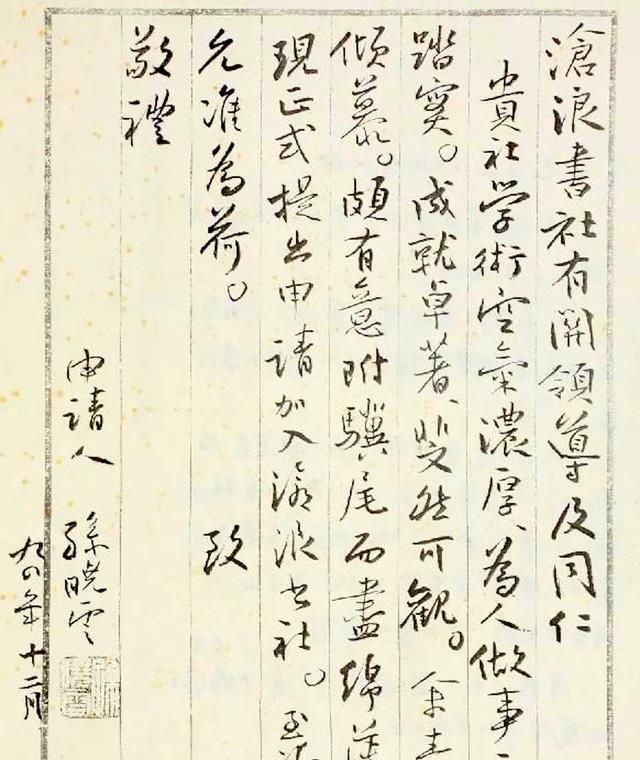 滄浪書社有關領導及同仁
貴社学術空氣濃厚、為人做事
踏實。成就卓著、斐然可觀。余
傾慕。頗有意附驥尾而盡綿薄
現正式提出申請加入滄浪书社。至
允准為荷。 致
敬禮
申請人 孫曉雲
九四年十二月